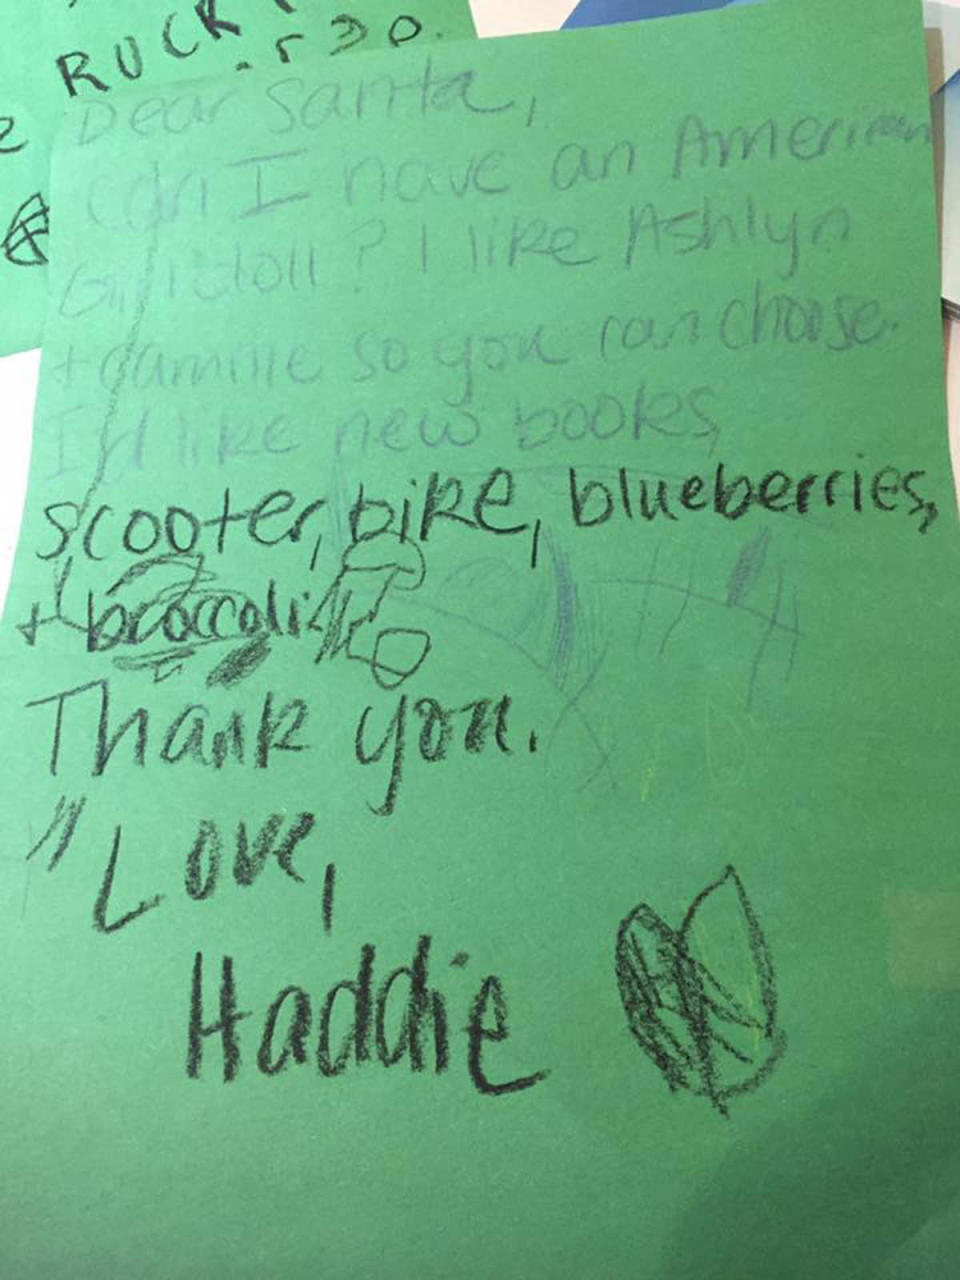 RUCK
Dear Santa,
can I have an American
Girl doll? I like Ashlyn
+ cammie so you can choose.
I'd like new books,
scooter, bike, blueberries,
+ broccoli.
Thank you.
Love,
Haddie